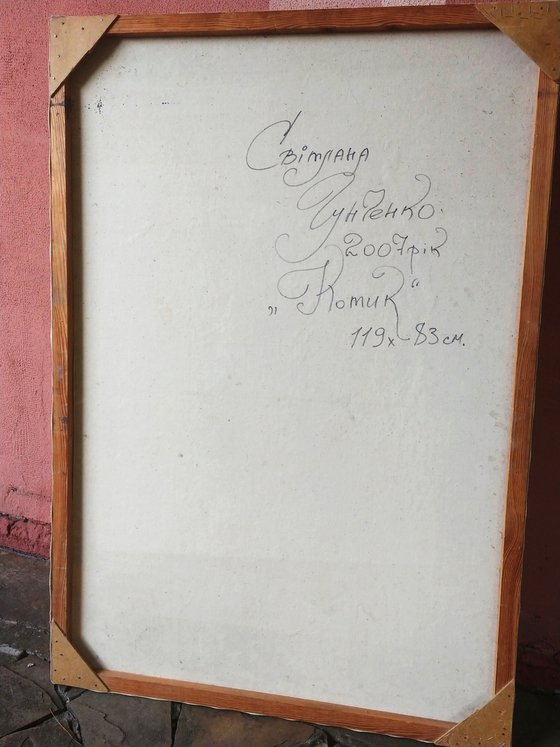 Світлана
Гунченко.
2007 рік
„Котик“
119х83 см.